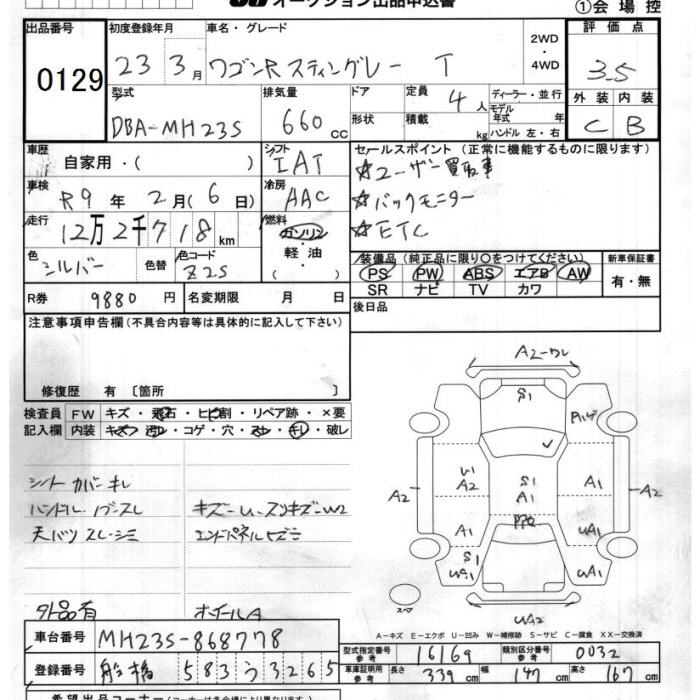 オークション出品申込書
①会場控
出品番号 0129
初度登録年月 23 3月
車名・グレード ワゴンR スティングレー T
2WD・4WD
評価点 3.5
型式 DBA-MH23S
排気量 660 cc
ドア
形状
定員 4人
積載 kg
ディーラー・並行
モデル年式 年式
ハンドル 左・右
外装 内装
C B
車歴 自家用・( )
シフト IAT
セールスポイント (正常に機能するものに限ります)
☆ユーザー買取車
☆バックモニター
☆ETC
車検 R9年 2月(6日)
冷房 AAC
走行 12万2千718km
燃料 ガソリン・軽油 ( )
色 シルバー 色替
色コード Z2S
装備品 (純正品に限り○をつけてください)
新車保証書
PS PW ABS エアB AW
SR ナビ TV カワ
有・無
R券 9880円
名変期限 月 日
後日品
注意事項申告欄 (不具合内容等は具体的に記入して下さい)
修復歴 有 〔箇所 〕
検査員 FW キズ・飛石・ヒビ割・リペア跡・×要
記入欄 内装 キズ・汚レ・コゲ・穴・スレ・キレ・破レ
シートカバーキレ
ハンドル ノブスレ キズーU、スリキズーW2
天バリ スレ・シミ エンドパネルヒズミ
外品有 ホイールA
A2-ワレ
S1
Pハゲ
U1
A2
S1
A1
A1
A2
A2
PPC
A1
UA1
S1
UA1
UA1
スペア
UA2
A-キズ E-エクボ U-凹み W-補修跡 S-サビ C-腐食 XX-交換済
車台番号 MH23S-868778
型式指定番号 参考 16169
類別区分番号 参考 0032
登録番号 船橋 583 う 3265
車庫証明用 参考 長さ 339cm 幅 147cm 高さ 167cm
希望出品コーナー